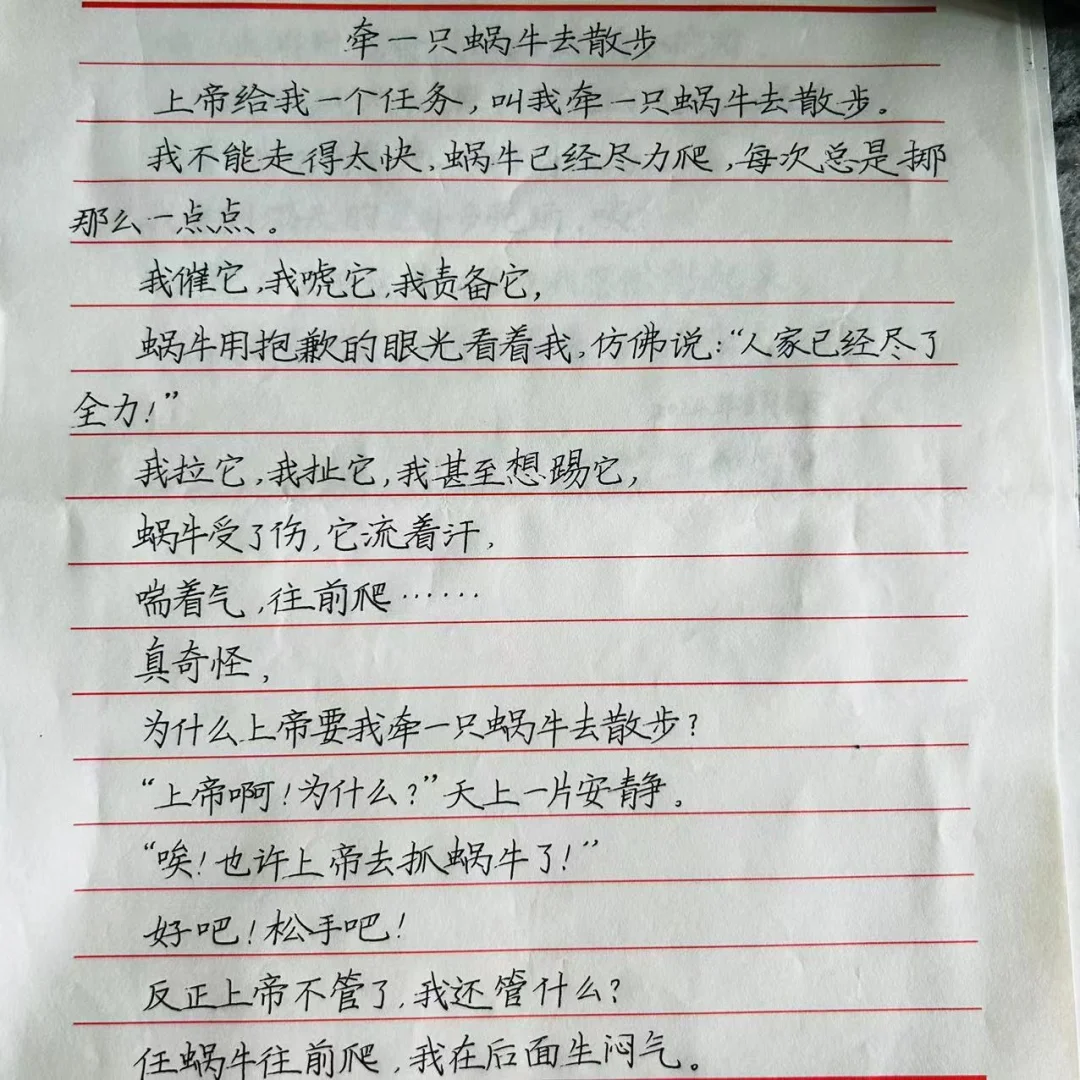 牵一只蜗牛去散步
上帝给我一个任务，叫我牵一只蜗牛去散步。
我不能走得太快，蜗牛已经尽力爬，每次总是挪
那么一点点。
我催它，我唬它，我责备它，
蜗牛用抱歉的眼光看着我，仿佛说：“人家已经尽了
全力！”
我拉它，我扯它，我甚至想踢它，
蜗牛受了伤，它流着汗，
喘着气，往前爬……
真奇怪，
为什么上帝要我牵一只蜗牛去散步？
“上帝啊！为什么？”天上一片安静。
“唉！也许上帝去抓蜗牛了！”
好吧！松手吧！
反正上帝不管了，我还管什么？
任蜗牛往前爬，我在后面生闷气。